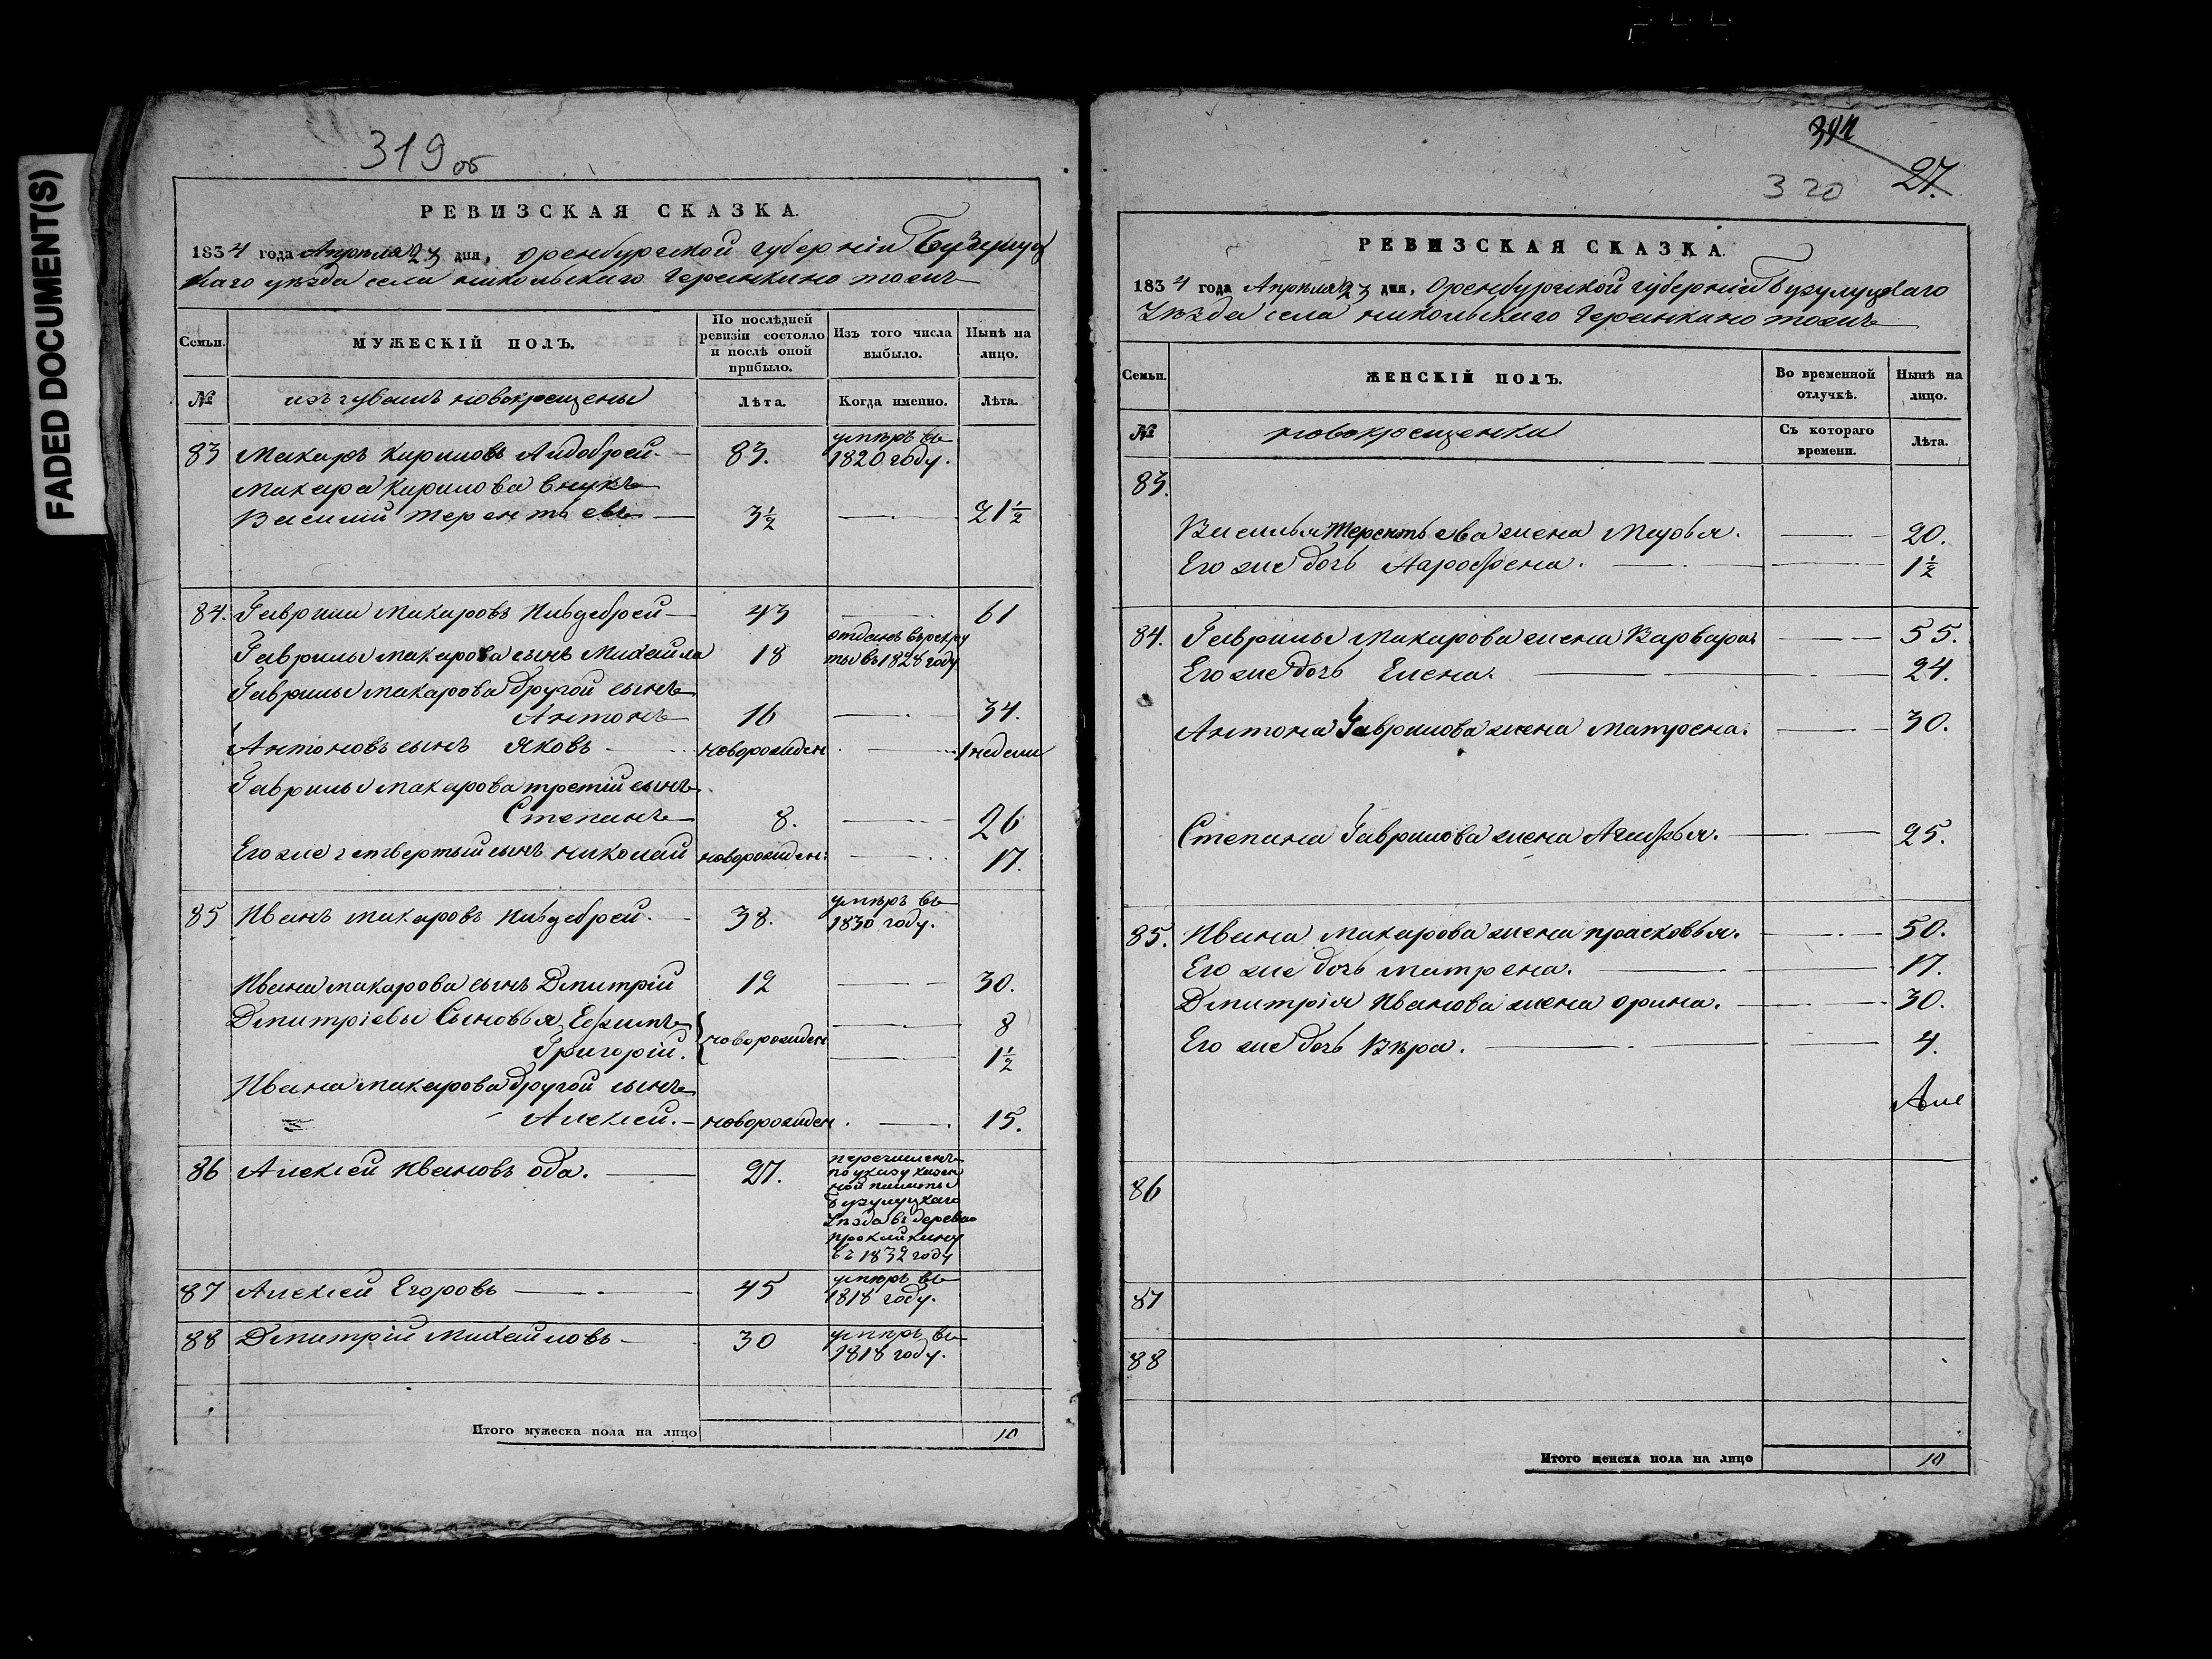 FADED DOCUMENT(S)
319 об
РЕВИЗСКАЯ СКАЗКА.
1834 года Апрѣля 23 дня, Оренбургской губерніи Бузулуц
каго уѣзда села никольскаго Черенкино тожъ
Семьи.
МУЖЕСКІЙ ПОЛЪ.
По послѣдней ревизіи состояло и послѣ оной прибыло.
Изъ того числа выбыло.
Нынѣ на лицо.
№
изъ чувашъ новокрещены
Лѣта.
Когда именно.
Лѣта.
83 Макаръ Кириловъ Андобрей. 83. умѣръ въ 1820 году.
Макара Кирилова внукъ
Василий Терентьевъ 3½ 21½
84. Гаврила Макаровъ 43 61
Гаврилы макарова сынъ Михайла 18 отданъ въ рекру
ты въ 1828 году
Гаврилы макарова другой сынъ
Антонъ 16 34.
Антоновъ сынъ Яковъ новорожден. 1 недели
Гаврилы макарова третій сынъ
Степанъ 8. 26
Его же четвертый сынъ николай новорожден: 17.
85 Иванъ макаровъ 38. умѣръ въ 1830 году.
Ивана макарова сынъ Дмитрій 12 30.
Дмитріевы Сыновья, Ефимъ новорожден 8
Григорій. 1½
Ивана макарова другой сынъ
Алексей. новорожден. 15.
86 Алексей Ивановъ ода. 27. перечисленъ
по указу казен
ной палаты
Бузулуцкаго
Уѣзда въ деревню
проклийкину
въ 1832 году
87 Алексей Егоровъ 45 умѣръ въ 1818 году.
88 Дмитрій Михайловъ 30 умѣръ въ 1818 году.
Итого мужеска пола на лицо 10
27.
320
РЕВИЗСКАЯ СКАЗКА.
1834 года Апрѣля 23 дня, Оренбургской губерніи Бузулуцкаго
Уѣзда села никольскаго Черенкино тожъ
Семьи.
ЖЕНСКІЙ ПОЛЪ.
Во временной отлучкѣ.
Нынѣ на лицо.
№
новокрещенки
Съ котораго времени.
Лѣта.
83.
Василья Терентьева жена Медовья. 20.
Его же дочь 1½
84. Гаврилы Макарова жена Варвара 55.
Его же дочь Елена. 24.
Антона Гаврилова жена матрена. 30.
Степана Гаврилова жена Агафья. 25.
85. Ивана макарова жена прасковья. 50.
Его же дочь матрена. 17.
Дмитрія Иванова жена орина. 30.
Его же дочь Вѣра. 4.
86
87
88
Итого женска пола на лицо 10